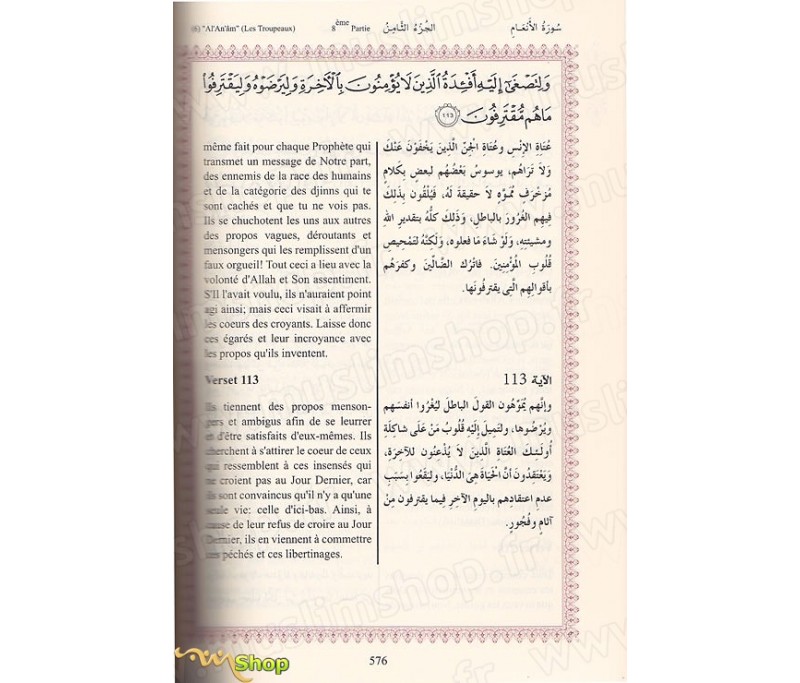 (6) "Al'An'âm" (Les Troupeaux) 8ème Partie الجُزءُ الثَّامِنُ سُورَةُ الأَنْعَامِ
وَلِتَصْغَىٰٓ إِلَيْهِ أَفْـِٔدَةُ ٱلَّذِينَ لَا يُؤْمِنُونَ بِٱلْـَٔاخِرَةِ وَلِيَرْضَوْهُ وَلِيَقْتَرِفُوا۟
مَا هُم مُّقْتَرِفُونَ ١١٣
même fait pour chaque Prophète qui
transmet un message de Notre part,
des ennemis de la race des humains
et de la catégorie des djinns qui te
sont cachés et que tu ne vois pas.
Ils se chuchotent les uns aux autres
des propos vagues, déroutants et
mensongers qui les remplissent d'un
faux orgueil! Tout ceci a lieu avec la
volonté d'Allah et Son assentiment.
S'Il l'avait voulu, ils n'auraient point
agi ainsi; mais ceci visait à affermir
les coeurs des croyants. Laisse donc
ces égarés et leur incroyance avec
les propos qu'ils inventent.
عُتَاةِ الإِنْسِ وعُتَاةِ الجِنِّ الَّذِينَ يَخْفَوْنَ عَنْكَ
وَلاَ تَرَاهُم، يوسوسُ بَعْضُهُم لبعضٍ بِكَلامٍ
مُزَخْرَفٍ مُمَوَّهٍ لاَ حقيقةَ لَهُ، فَيُلْقُون بِذَلِكَ
فِيهِم الغُرُورَ بالبَاطلِ، وَذَلكَ كلُّهُ بتقديرِ اللهِ
ومشيئتِهِ، وَلَوْ شَاءَ مَا فعلوه، وَلَكِنَّهُ لتَمْحِيصِ
قُلُوبِ المُؤْمِنِينَ. فاترُك الضَّالّينَ وكفرَهُم
بأقوالِهِم الَّتِي يقترفُونَها.
Verset 113
Ils tiennent des propos menson-
gers et ambigus afin de se leurrer
et d'être satisfaits d'eux-mêmes. Ils
cherchent à s'attirer le coeur de ceux
qui ressemblent à ces insensés qui
ne croient pas au Jour Dernier, car
ils sont convaincus qu'il n'y a qu'une
seule vie: celle d'ici-bas. Ainsi, à
cause de leur refus de croire au Jour
Dernier, ils en viennent à commettre
ces péchés et ces libertinages.
الآية 113
وإنَّهم يُمَوِّهُون القولَ الباطلَ لِيُغُرُوا أنفسَهم
ويُرْضُوها، ولتميلَ إليْهِ قُلُوبُ مَنْ عَلَى شاكِلَةِ
أُولَـئِكَ العُتَاةِ الَّذِينَ لاَ يُذْعِنُون للآخِرَةِ،
وَيَعْتَقِدُونَ أنَّ الحَيَاةَ هِيَ الدُّنْيَا، ولِيَقَعُوا بِسَبَبِ
عدمِ اعتقادِهِم باليومِ الآخِرِ فِيمَا يقترفون مِنْ
آثامٍ وفُجُورٍ.
576
Shop
muslimshop.fr